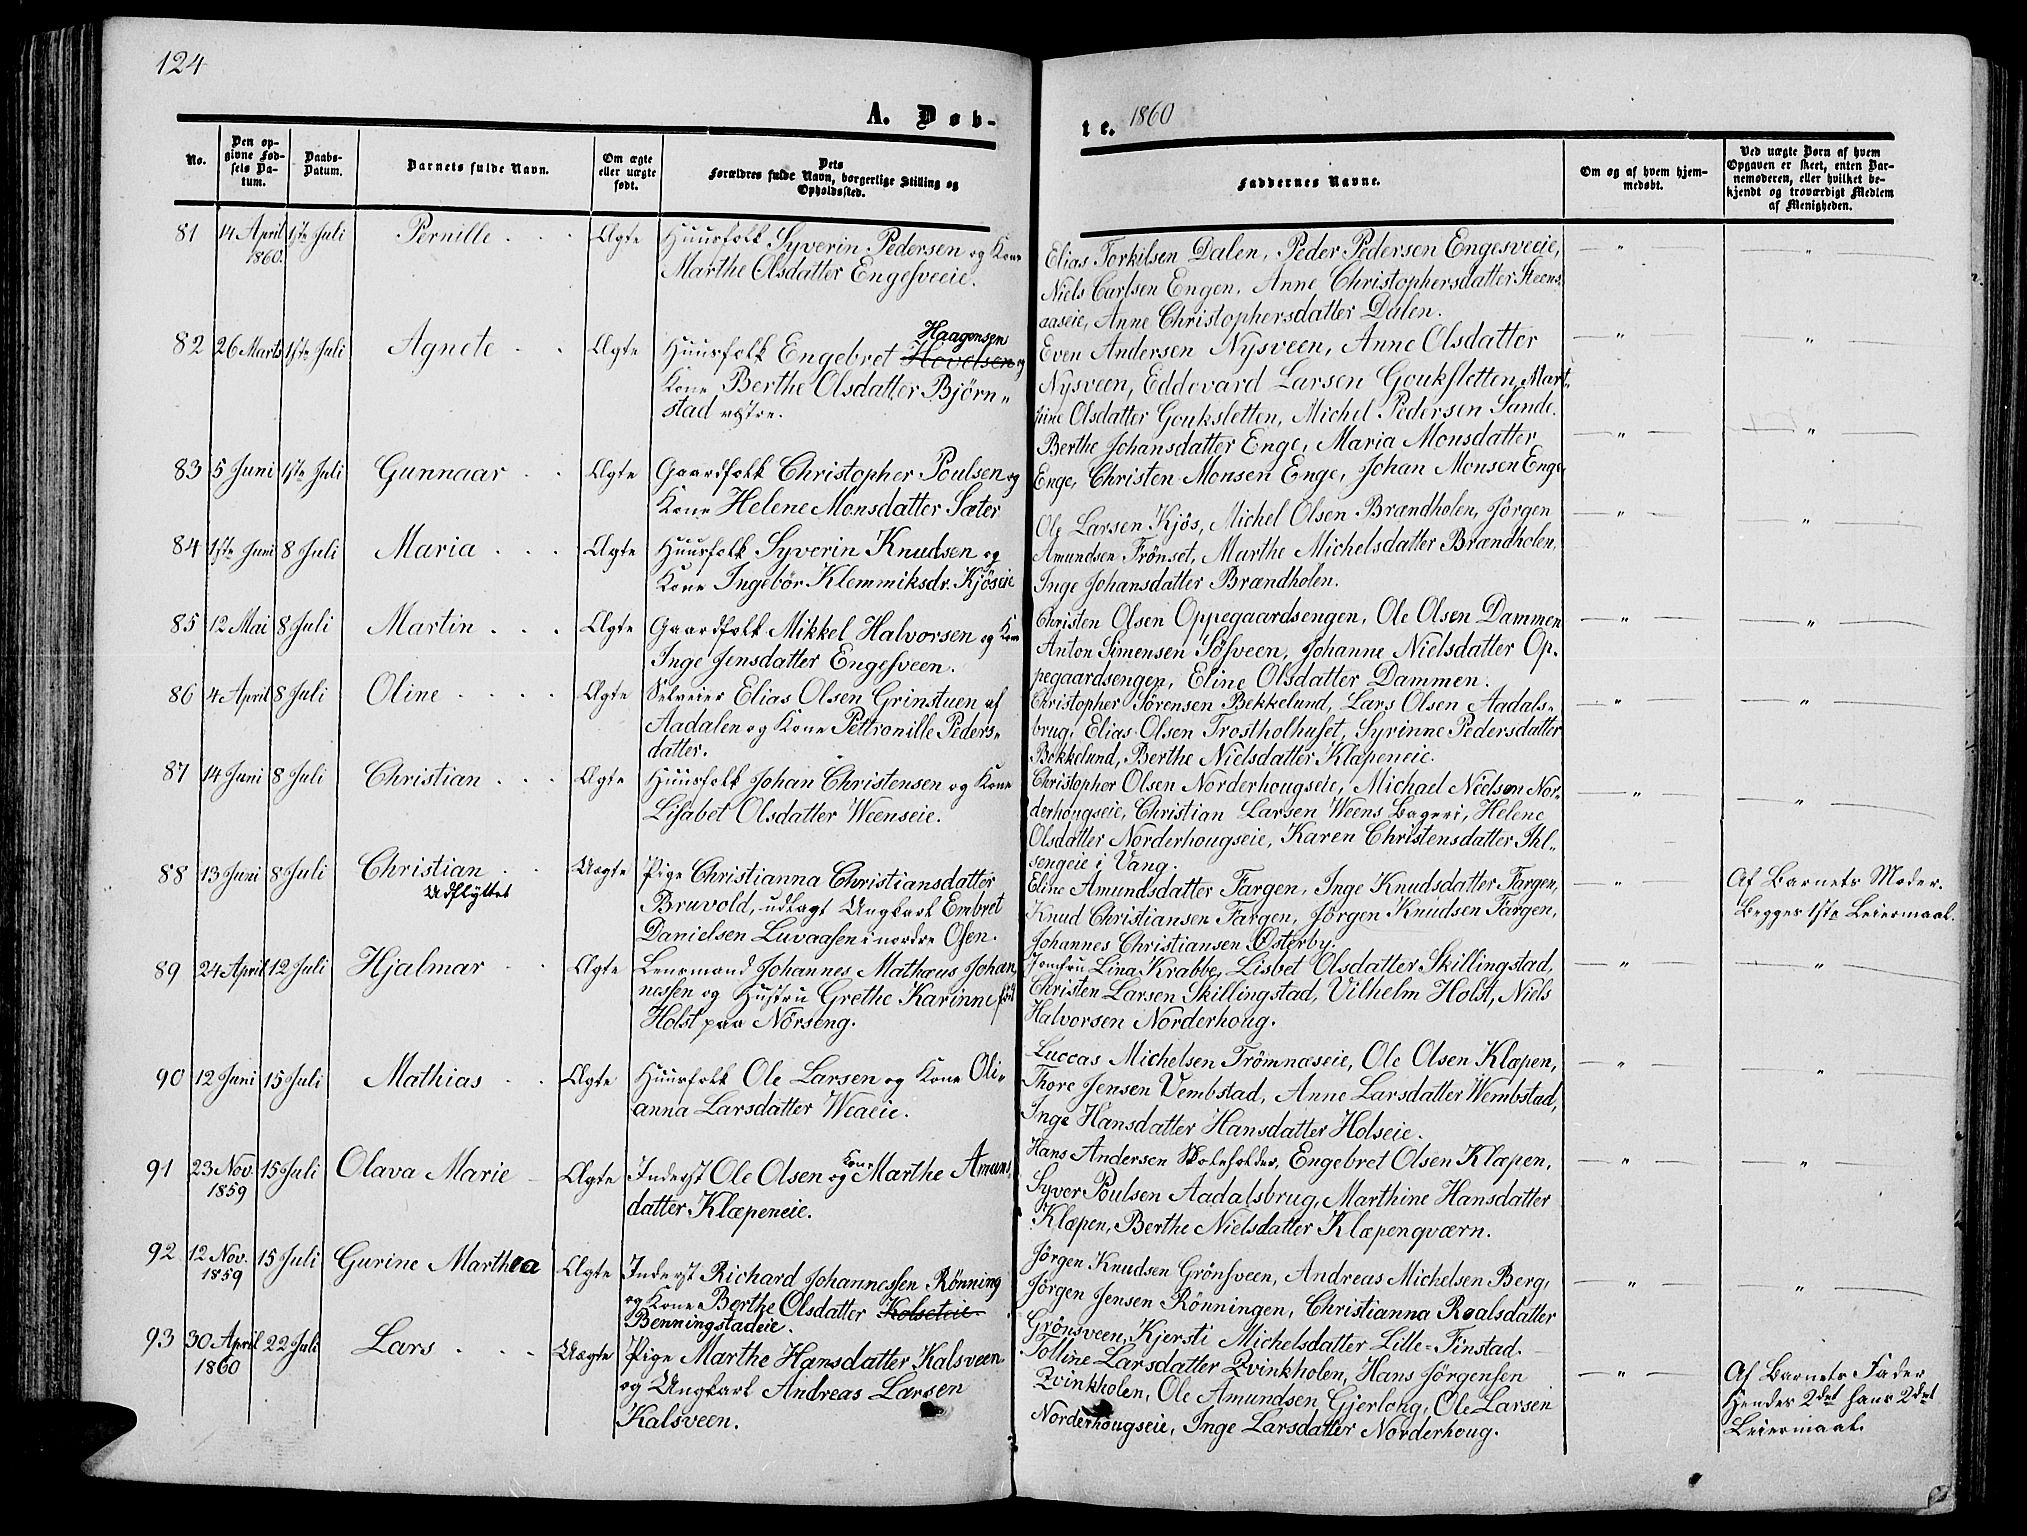 124
A. Døb-
te. 1860
No.
Den op-
givne Fød-
sels Da-
tum.
Daabs-
Datum.
Barnets fulde Navn.
Om ægte
eller uægte
født.
Dets
Forældres fulde Navn, borgerlige Stilling og
Opholdssted.
Faddernes Navne.
Om og af hvem hjem-
medøbt.
Ved uægte Børn af hvem
Opgaven er skeet, enten Bar-
nemoderen, eller hvilket be-
kjendt og troværdigt Medlem
af Menigheden.
81 14 April 1860. 1ste Juli Pernille Ægte
Huusfolk Syverin Pedersen og Kone
Marthe Olsdatter Engesveeie.
Elias Torkilsen Dalen, Peder Pedersen Engesveeie,
Niels Carlsen Engen, Anne Christophersdatter Steens-
aaseie, Anne Christophersdatter Dalen.
82 26 Marts 1ste Juli Agnete Ægte
Haagensen
Huusfolk Engebret Hovelsen og
Kone Berthe Olsdatter Bjørn-
stad østre.
Even Andersen Nysveen, Anne Olsdatter
Nysveen, Eddovard Larsen Gouksletten, Mart-
hine Olsdatter Gouksletten, Michel Pedersen Sande.
83 5 Juni 1ste Juli Gunnaar Ægte
Gaardfolk Christopher Poulsen og
Kone Helene Monsdatter Sæter
Berthe Johansdatter Enge, Maria Monsdatter
Enge, Christen Monsen Enge, Johan Monsen Enge
84 1ste Juni 8 Juli Maria Ægte
Huusfolk Syverin Knudsen og
Kone Ingebör Klemmiksdr. Kjöseie
Ole Larsen Kjös, Michel Olsen Brændholen, Jörgen
Amundsen Frönset, Marthe Michelsdatter Brændholen,
Inge Johansdatter Brændholen.
85 12 Mai 8 Juli Martin Ægte
Gaardfolk Mikkel Halvorsen og Kone
Inge Jensdatter Engesveen.
Christen Olsen Oppegaardsengen, Ole Olsen Dammen
Anton Simensen Sösveen, Johanne Nielsdatter Op-
pegaardsengen, Eline Olsdatter Dammen.
86 4 April 8 Juli Oline Ægte
Selveier Elias Olsen Grinstuen af
Aadalen og Kone Pettronille Peders-
datter.
Christopher Sörensen Bekkelund, Lars Olsen Aadals-
brug, Elias Olsen Trostholhuset, Syrinne Pedersdatter
Bekkelund, Berthe Nielsdatter Klæpeneie.
87 14 Juni 8 Juli Christian Ægte
Huusfolk Johan Christensen og Kone
Lisabet Olsdatter Weenseie.
Christopher Olsen Norderhougseie, Michael Nielsen Nor-
derhougseie, Christian Larsen Weens Bageri, Helene
Olsdatter Norderhougseie, Karen Christensdatter Ihl-
sengeie i Vang.
88 13 Juni 8 Juli Christian Uægte
Udflyttet
Pige Christianna Christiansdatter
Bruvold, udlagt Ungkarl Embret
Danielsen Luvaasen i nordre Osen.
Eline Amundsdatter Fargen, Inge Knudsdatter Fargen,
Knud Christiansen Fargen, Jörgen Knudsen Fargen,
Johannes Christiansen Österby.
Af Barnets Moder.
Begges 1ste Leiermaal.
89 24 April 12 Juli Hjalmar Ægte
Lensmand Johannes Mathæus Johan-
nessen og Hustru Grethe Karinne föd
Holst paa Nörseng.
Jomfru Lina Krabbe, Lisbet Olsdatter Skillingstad,
Christen Larsen Skillingstad, Vilhelm Holst, Niels
Halvorsen Norderhoug.
90 12 Juni 15 Juli Mathias Ægte
Huusfolk Ole Larsen og Kone Oli-
anna Larsdatter Weaeie.
Luccas Michelsen Trömnæseie, Ole Olsen Klæpen,
Thore Jensen Vembstad, Anne Larsdatter Wembstad,
Inge Hansdatter Hansdatter Holseie.
91 23 Nov 1859 15 Juli Olava Marie Ægte
Inderst Ole Olsen og Kone Marthe Amuns
datter Klæpeneie.
Hans Andersen Skoleholder, Engebret Olsen Klæpen,
Syver Poulsen Aadalsbrug, Marthine Hansdatter
Klæpen, Berthe Nielsdatter Klæpenqværn.
92 12 Nov. 1859 15 Juli Gurine Marthea Ægte
Inderst Richard Johannessen Rønning
og Kone Berthe Olsdatter Kolseteie
Benningstadeie.
Jörgen Knudsen Grönsveen, Andreas Michelsen Berg,
Jörgen Jensen Rönningen, Christianna Roalsdatter
Grönsveen, Kjersti Michelsdatter Lille-Finstad.
93 30 April 1860 22 Juli Lars Uægte
Pige Marthe Hansdatter Kalsveen
og Ungkarl Andreas Larsen
Kalsveen.
Tolline Larsdatter Qvinkholen, Hans Jörgensen
Qvinkholen, Ole Amundsen Gjerlong, Ole Larsen
Norderhougseie, Inge Larsdatter Norderhoug.
Af Barnets Fader
Hendes 2det hans 2det
Leiermaal.